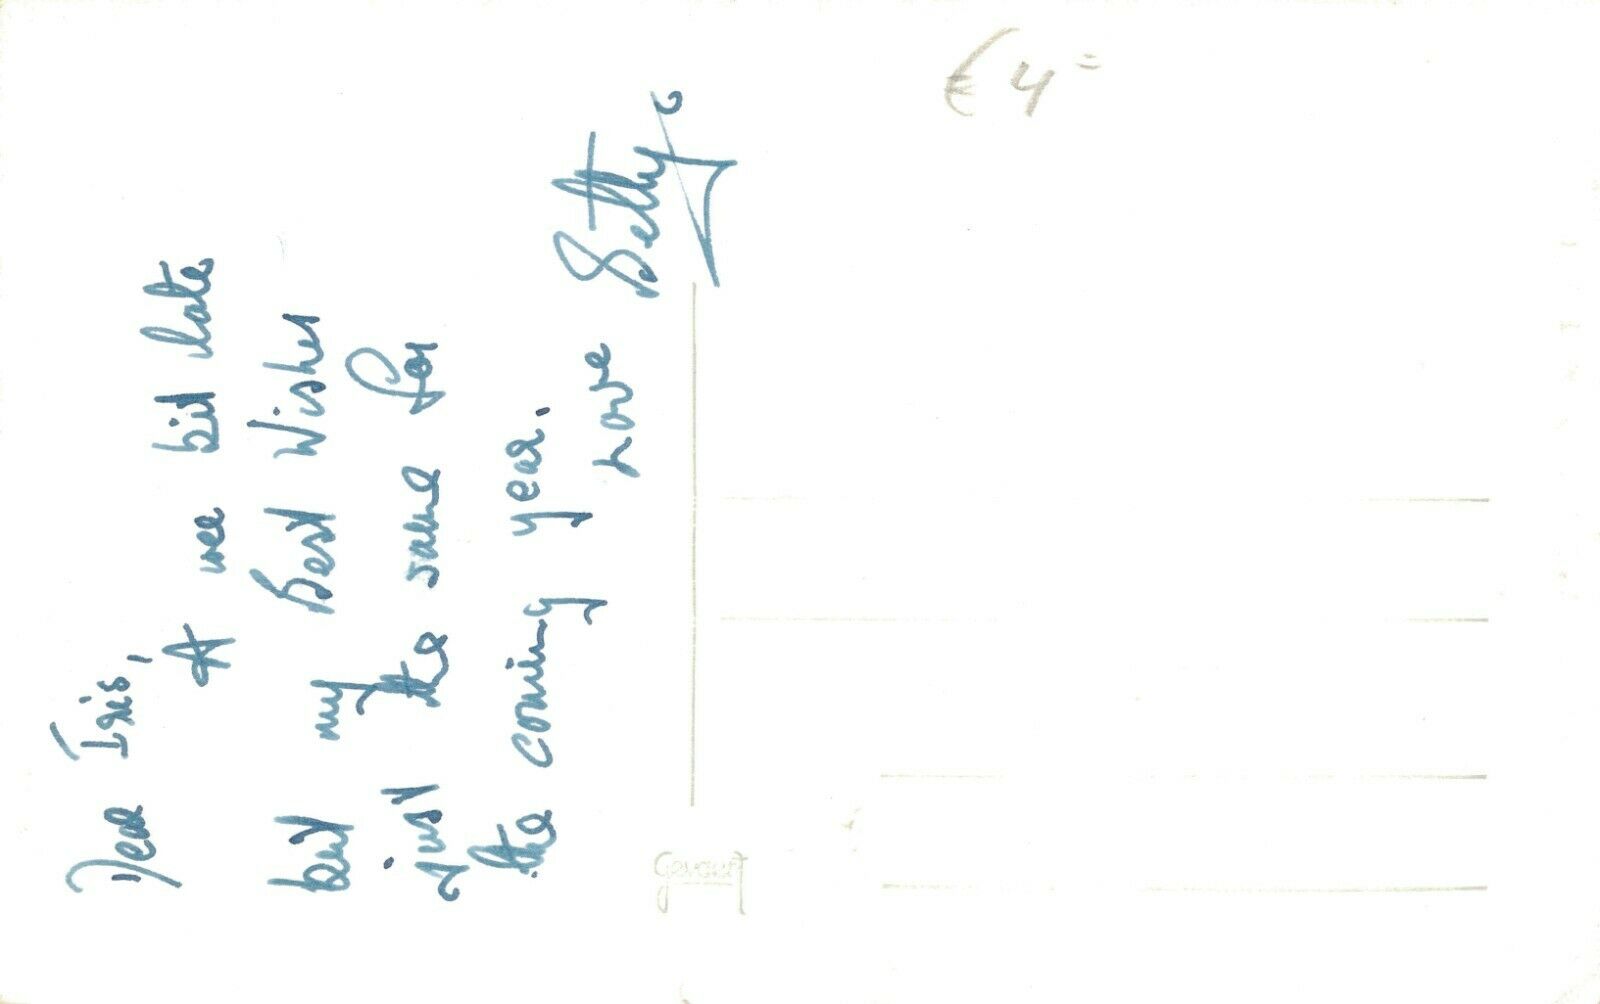 Dear Iris,
A wee bit late
but my Best Wishes
just the same for
the coming year.
Love Betty
€ 4=
Gevaert